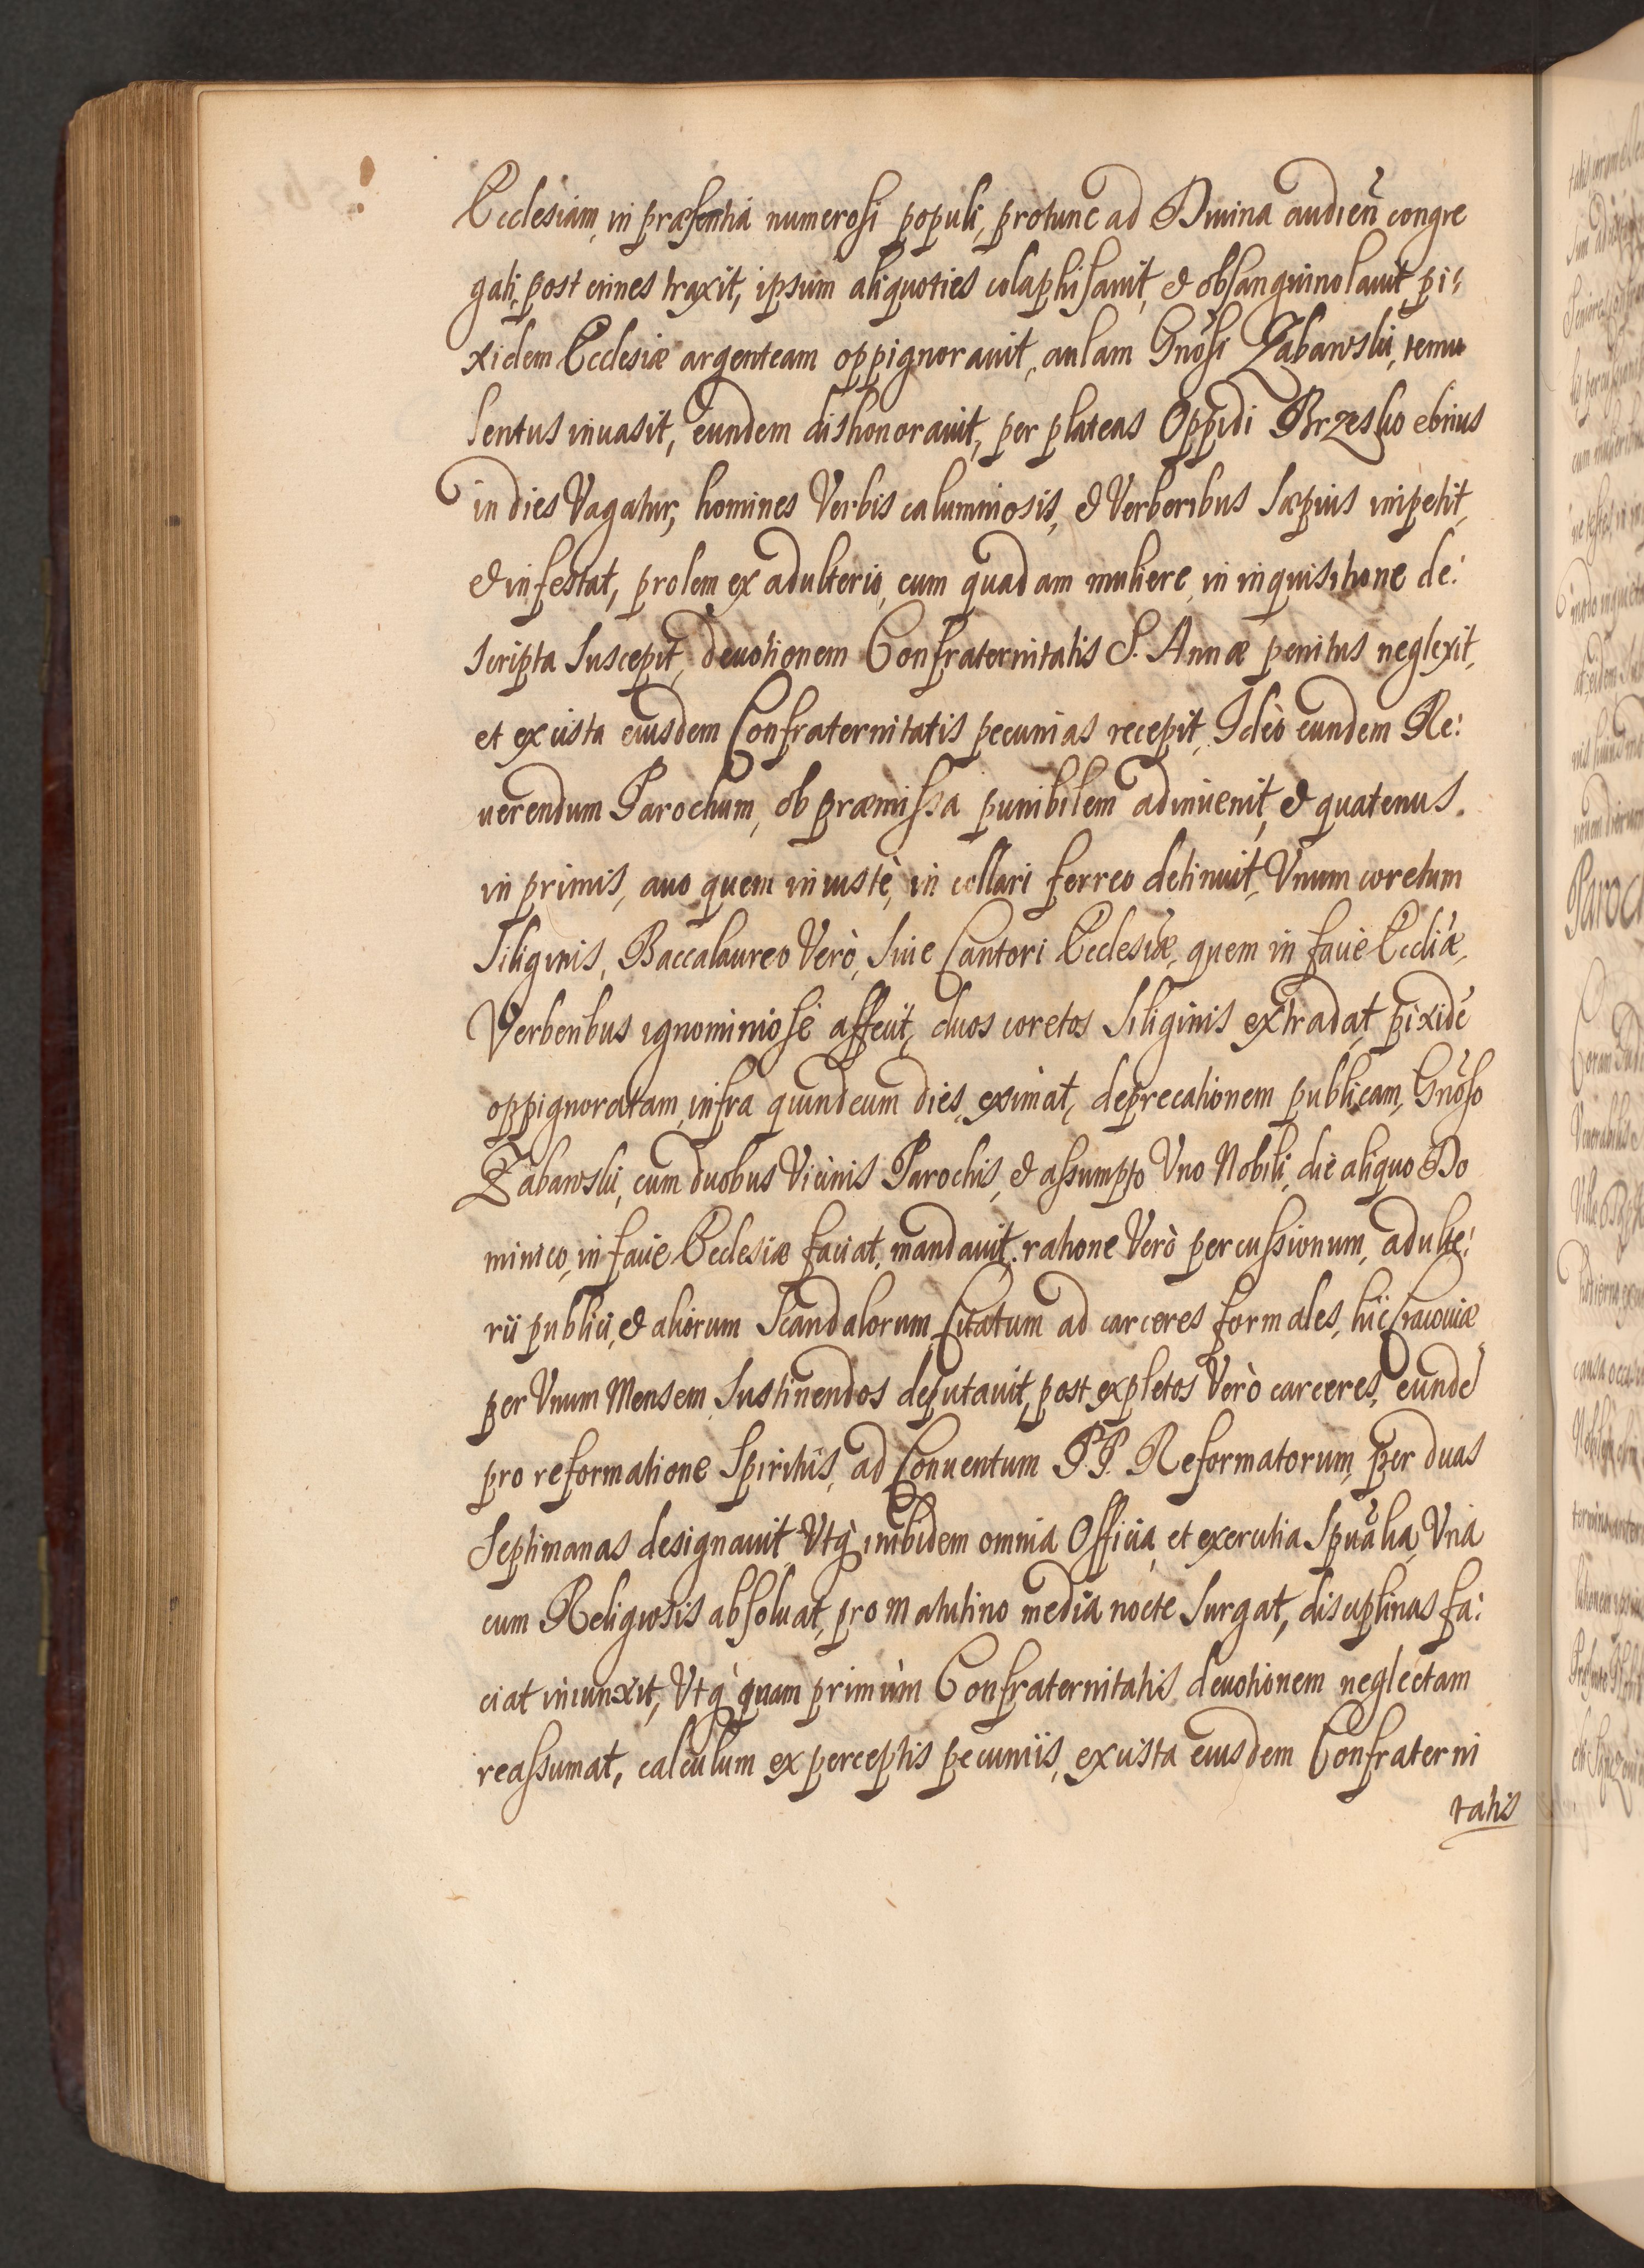 Ecclesiam, in præsentia numerosi populi, protunc ad Diuina audien̄ congre
gati, post crines traxit, ipsum aliquoties colaphisauit, & obsanguinolauit, pi:
xidem Ecclesiæ argenteam oppignorauit, aulam Gnōsi Zabawski, temu
lentus inuasit, eundem dishonorauit, per plateas Oppidi Brzesko ebrius
in dies Vagatur, homines Verbis calumniosis, & Verberibus sæpius impetit,
& infestat, prolem ex adulterio, cum quadam muliere, in inquisitione de:
scripta suscepit, deuotionem Confraternitatis S. Annæ penitus neglexit,
et ex cista eiusdem Confraternitatis pecunias recepit, Ideò eundem Re:
uerendum Parochum, ob præmissa punibilem adinuenit, & quatenus.
in primis, auo quem iniustè, in collari ferreo detinuit, Vnum coretum
Siliginis, Baccalaureo Verò, siue Cantori Ecclesiæ, quem in facie Eccliæ,
Verberibus ignominiosè affecit, duos coretos Siliginis extradat, pixidē
oppignoratam, infra quindecim dies, eximat, deprecationem publicam, Gnōso
Zabawski, cum duobus Vicinis Parochis, & assumpto Vno Nobili, die aliquo Do
minico, in facie Ecclesiæ faciat, mandauit. ratione Verò percussionum, adulte:
rii publici, & aliorum Scandalorum, Citatum ad carceres formales, hic Cracouiæ
per Vnum Mensem, Sustinendos deputauit, post expletos Verò carceres, eundē
pro reformatione Spiritûs, ad Conuentum P.P. Reformatorum, per duas
Septimanas designauit, Vtq́ inibidem omnia Officia, et exercitia Spūalia, Vnà
cum Religiosis absoluat, pro Matutino media nocte surgat, disciplinas fa:
ciat iniunxit, Vtq́ quam primùm Confraternitatis deuotionem neglectam
reassumat, calculum ex perceptis pecuniis, ex cista eiusdem Confraterni
tatis